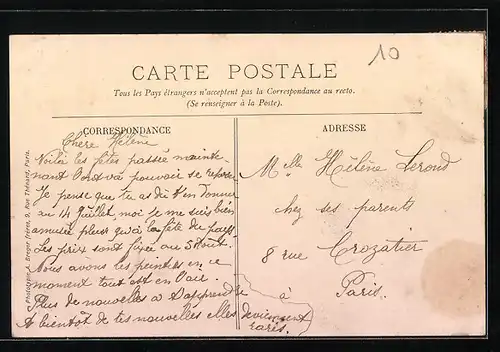 10
CARTE POSTALE
Tous les Pays étrangers n'acceptent pas la Correspondance au recto.
(Se renseigner à la Poste).
CORRESPONDANCE
Chère Hélène
Voilà les fêtes passée mainte-
nant l'on va pouvoir se reposer
Je pense que tu as dû t'en donner
au 14 Juillet moi je me suis bien
amusée pleur qu'à la fête du pays.
Les prix sont fixée au 5 Août.
Nous avons les peintres en ce
moment tout est en l'air.
Plus de nouvelles a t'apprendre
A bientôt de tes nouvelles elles deviennent
rares.
ADRESSE
Melle Hélène Leroud
chez ses parents
8 rue Crozatier
à Paris.
Phototypie A. Breger frères, 9, Rue Thénard, Paris.